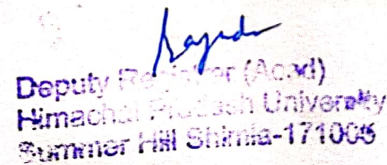 Deputy Registrar (Acad)
Himachal Pradesh University
Summer Hill Shimla-171005